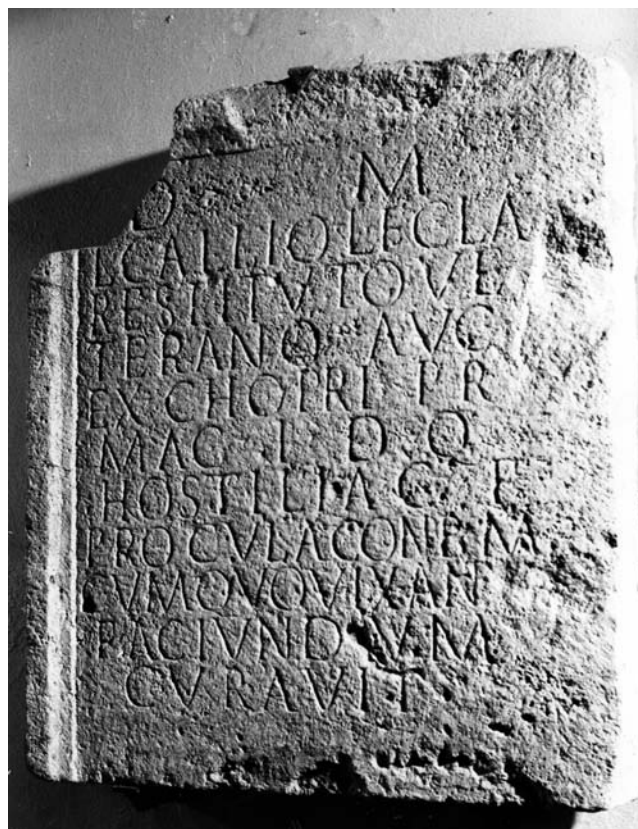 D M
L CALLIO L F CLA
RESTITVTO VE
TERANO AVG
EX CHO PRI PR
MAG I D Q
HOSTILIA C F
PROCVLA CON B M
CVM QVO VIX AN
FACIVNDVM
CVRAVIT